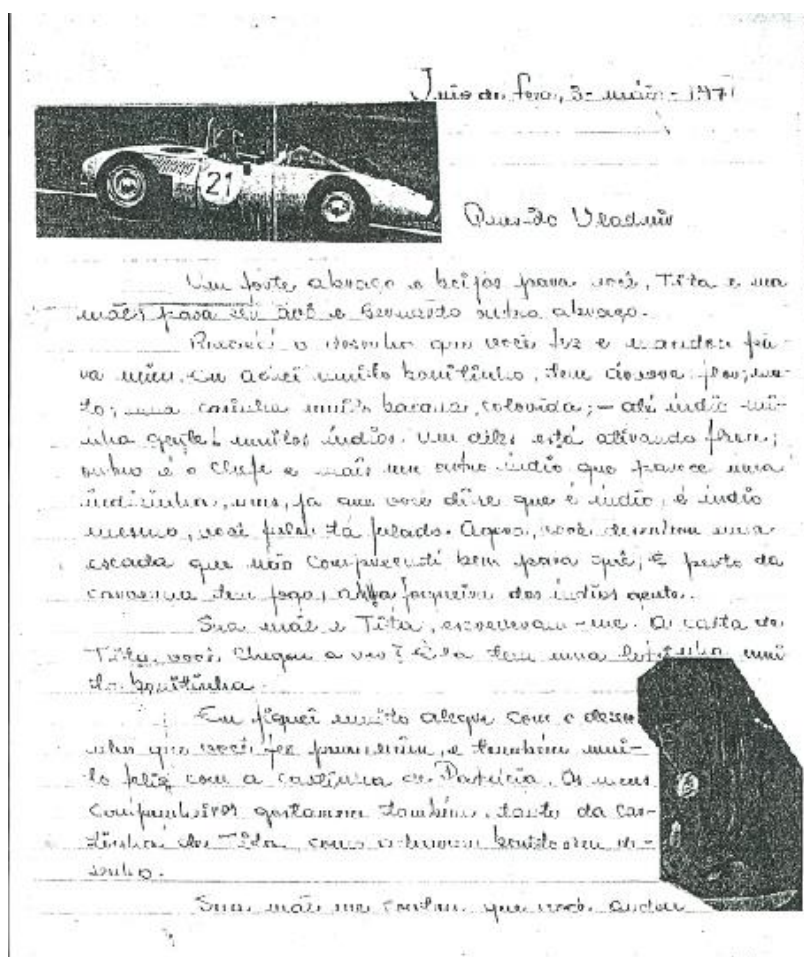 Juiz de Fora, 3 - maio - 1971
21
Querido Vladimir
Um forte abraço e beijos para você, Tita e sua
mãe; para seu avô e Bernardo outro abraço.
Recebi o desenho que você fez e mandou pa-
ra mim. Eu achei muito bonitinho, tem árvore, flor; ma-
to; uma casinha muito bacana, colorida; - até índio mi-
nha gente! muitos índios. Um deles está atirando flecha;
outro é o Chefe e mais um outro índio que parece uma
indiazinha, mas, já que você disse que é índio, é índio
mesmo, você falou tá falado. Agora, você desenhou uma
escada que não compreendi bem para quê; E perto da
caverna tem fogo, a fogueira dos índios
Sua mãe e Tita, escreveram-me. A carta de
Tita, você chegou a ver? Ela tem uma letrinha mui-
to bonitinha.
Eu fiquei muito alegre com o dese-
nho que você fez para mim, e também mui-
to feliz com a cartinha de Patrícia. Os meus
companheiros gostaram também, tanto da car-
tinha de Tita, como acharam bonito seu de-
senho.
Sua mãe me contou que você andou